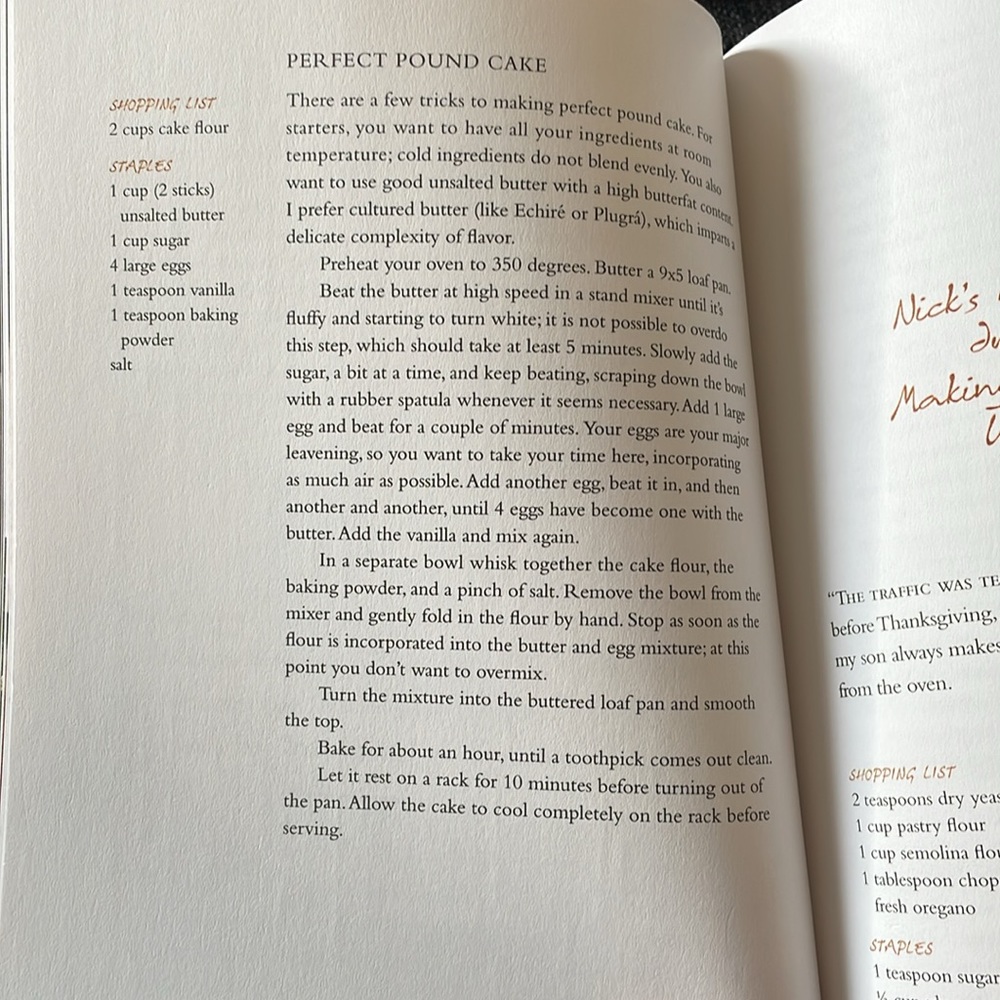 PERFECT POUND CAKE
SHOPPING LIST
2 cups cake flour
STAPLES
1 cup (2 sticks)
unsalted butter
1 cup sugar
4 large eggs
1 teaspoon vanilla
1 teaspoon baking
powder
salt
There are a few tricks to making perfect pound cake. For
starters, you want to have all your ingredients at room
temperature; cold ingredients do not blend evenly. You also
want to use good unsalted butter with a high butterfat content.
I prefer cultured butter (like Echiré or Plugrá), which imparts a
delicate complexity of flavor.
Preheat your oven to 350 degrees. Butter a 9x5 loaf pan.
Beat the butter at high speed in a stand mixer until it's
fluffy and starting to turn white; it is not possible to overdo
this step, which should take at least 5 minutes. Slowly add the
sugar, a bit at a time, and keep beating, scraping down the bowl
with a rubber spatula whenever it seems necessary. Add 1 large
egg and beat for a couple of minutes. Your eggs are your major
leavening, so you want to take your time here, incorporating
as much air as possible. Add another egg, beat it in, and then
another and another, until 4 eggs have become one with the
butter. Add the vanilla and mix again.
In a separate bowl whisk together the cake flour, the
baking powder, and a pinch of salt. Remove the bowl from the
mixer and gently fold in the flour by hand. Stop as soon as the
flour is incorporated into the butter and egg mixture; at this
point you don't want to overmix.
Turn the mixture into the buttered loaf pan and smooth
the top.
Bake for about an hour, until a toothpick comes out clean.
Let it rest on a rack for 10 minutes before turning out of
the pan. Allow the cake to cool completely on the rack before
serving.
Nick's
Making
"THE TRAFFIC WAS TE
before Thanksgiving,
my son always makes
from the oven.
SHOPPING LIST
2 teaspoons dry yeas
1 cup pastry flour
1 cup semolina flou
1 tablespoon chop
fresh oregano
STAPLES
1 teaspoon sugar